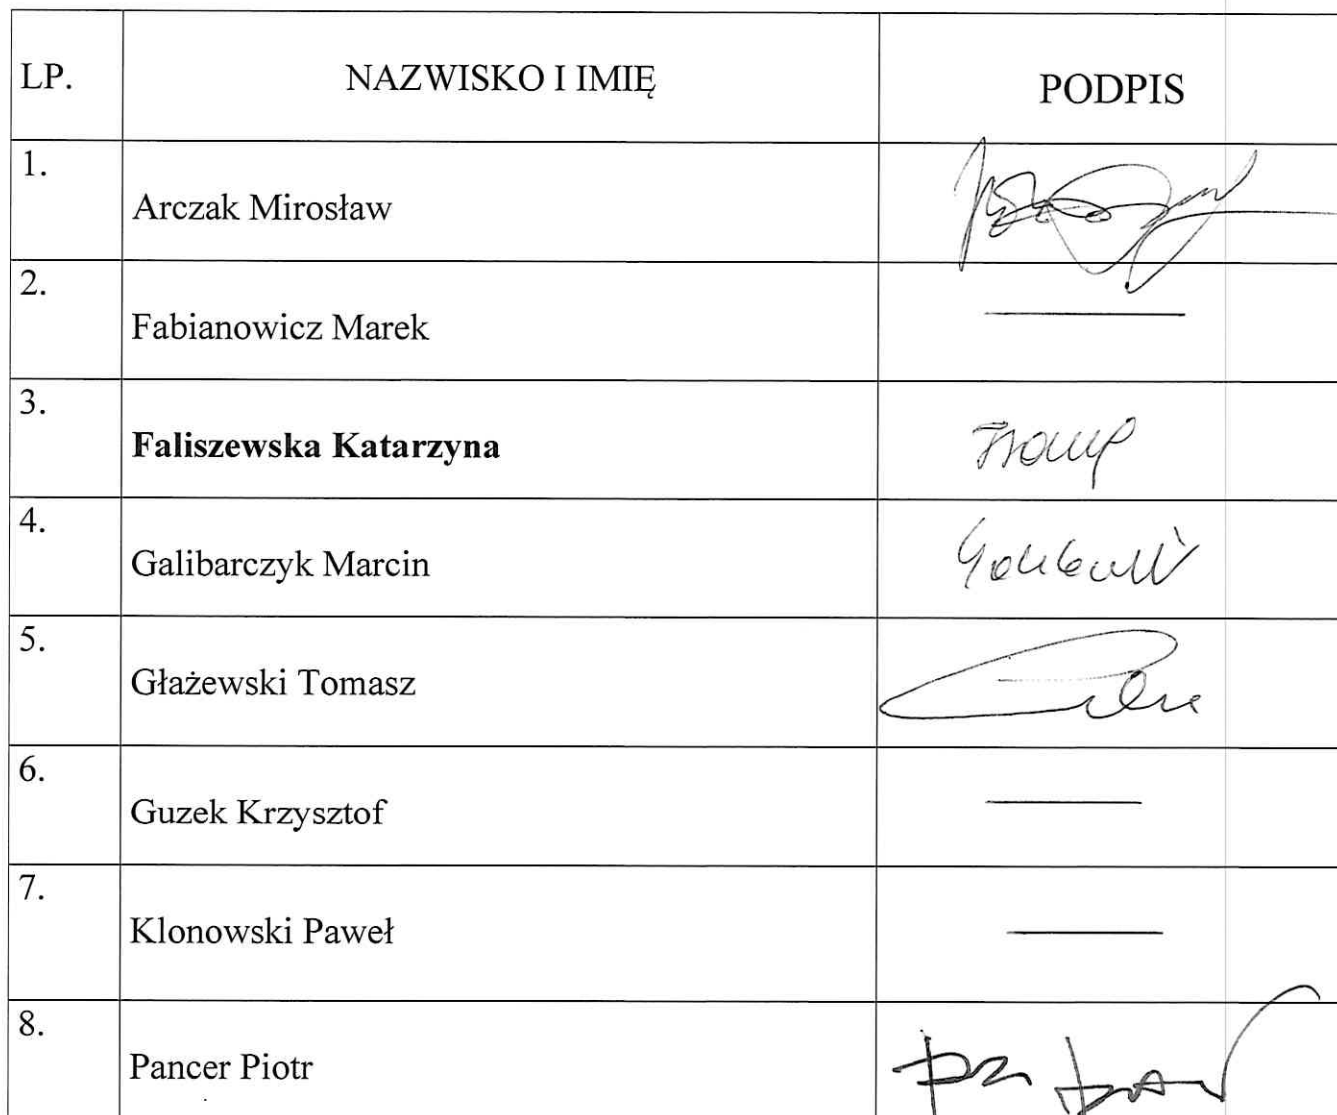 LP. NAZWISKO I IMIĘ PODPIS
1. Arczak Mirosław
2. Fabianowicz Marek
3. Faliszewska Katarzyna
4. Galibarczyk Marcin
5. Głażewski Tomasz
6. Guzek Krzysztof
7. Klonowski Paweł
8. Pancer Piotr